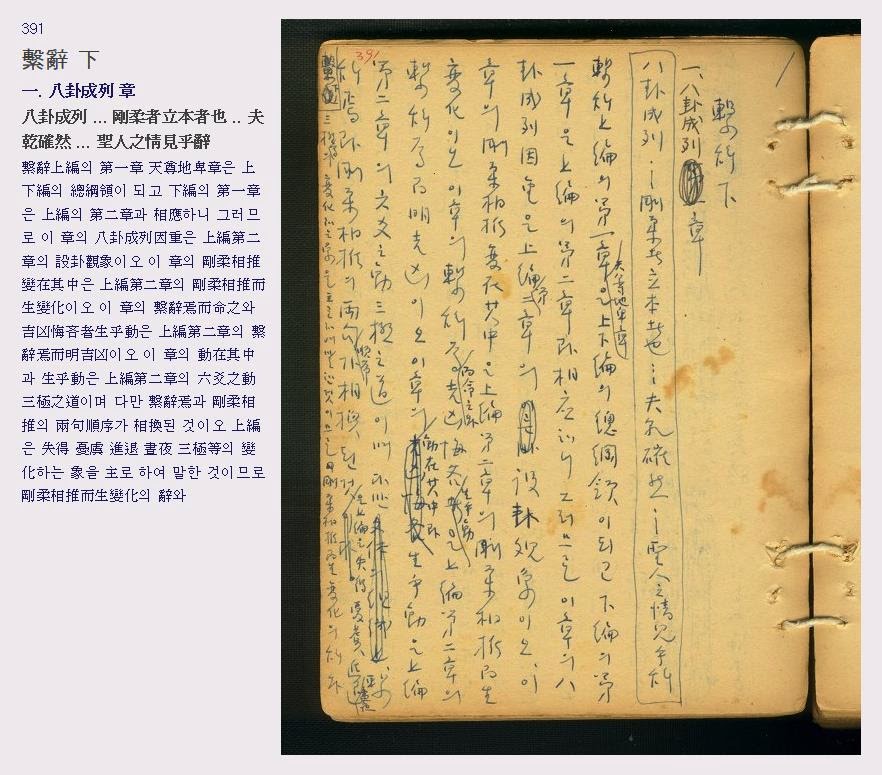 391
繫辭 下
一. 八卦成列 章
八卦成列 ... 剛柔者立本者也 .. 夫
乾確然 ... 聖人之情見乎辭
繫辭上編의 第一章 天尊地卑章은 上
下編의 總綱領이 되고 下編의 第一章
은 上編의 第二章과 相應하니 그러므
로 이 章의 八卦成列因重은 上編第二
章의 設卦觀象이오 이 章의 剛柔相推
變在其中은 上編第二章의 剛柔相推而
生變化이오 이 章의 繫辭焉而命之와
吉凶悔吝者生乎動은 上編第二章의 繫
辭焉而明吉凶이오 이 章의 動在其中
과 生乎動은 上編第二章의 六爻之動
三極之道이며 다만 繫辭焉과 剛柔相
推의 兩句順序가 相換된 것이오 上編
은 失得 憂虞 進退 晝夜 三極等의 變
化하는 象을 主로 하여 말한 것이므로
剛柔相推而生變化의 辭와
391
繫辭 下
一. 八卦成列 章
八卦成列…剛柔者立本者也…夫乾確然…聖人之情見乎辭
繫辭上編의 第一章 天尊地卑章은 上下編의 總綱領이 되고 下編의 第
一章은 上編의 第二章과 相應하니 그러므로 이 章의 八
卦成列因重은 上編第二章의 設卦觀象이오 이
章의 剛柔相推變在其中은 上編第二章의 剛柔相推而生
變化이오 이 章의 繫辭焉而命之와 吉凶悔吝者生乎動은 上編第二章의
繫辭焉而明吉凶이오 이 章의 動在其中과 生乎動은 上編
第二章의 六爻之動三極之道이며 다만 繫
辭焉과 剛柔相推의 兩句順序가 相換된 것이오 上編은 失得 憂虞 進退 晝夜
三極等의 變化하는 象을 主로 하여 말한 것이므로 剛柔相推而生變化의 辭와